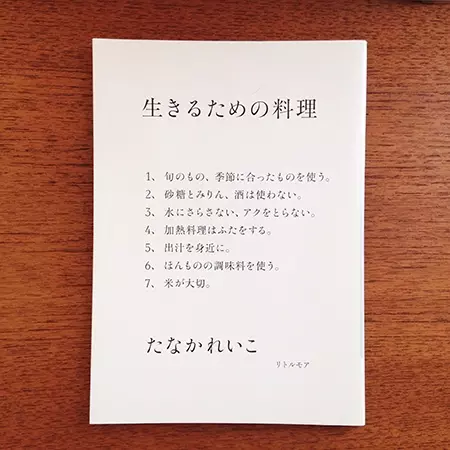 生きるための料理
1、旬のもの、季節に合ったものを使う。
2、砂糖とみりん、酒は使わない。
3、水にさらさない、アクをとらない。
4、加熱料理はふたをする。
5、出汁を身近に。
6、ほんものの調味料を使う。
7、米が大切。
たなかれいこ
リトルモア